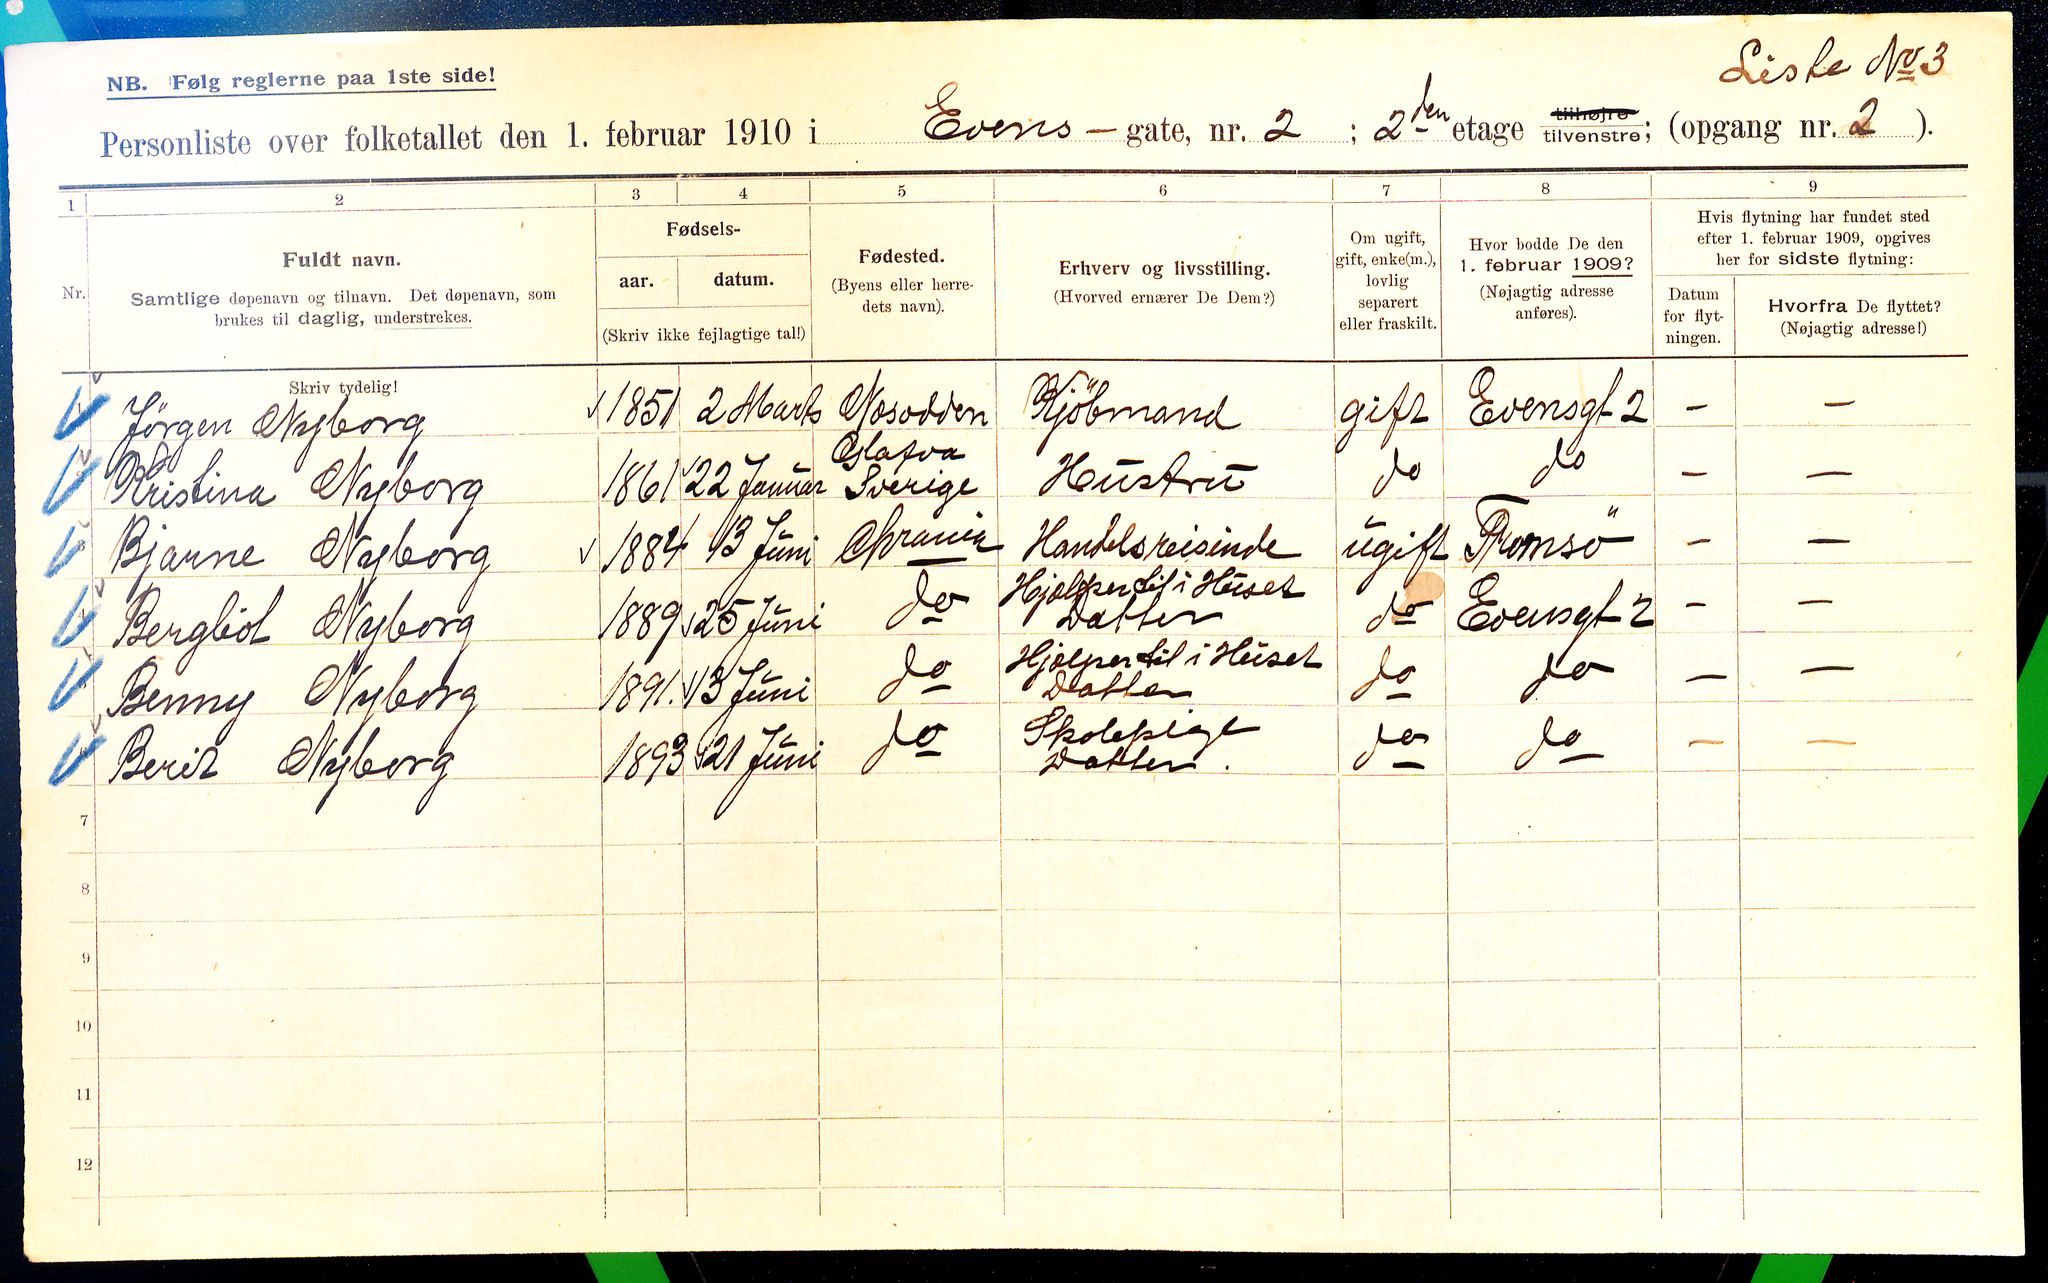 Liste No 3
NB. Følg reglerne paa 1ste side!
Personliste over folketallet den 1. februar 1910 i Evens - gate, nr. 2 ; 2den etage tilhøjre tilvenstre; (opgang nr. 2 ).
1 2 3 4 5 6 7 8 9
Nr.
Fuldt navn.
Samtlige døpenavn og tilnavn. Det døpenavn, som
brukes til daglig, understrekes.
Skriv tydelig!
Fødsels-
aar. datum.
(Skriv ikke fejlagtige tal!)
Fødested.
(Byens eller herre-
dets navn).
Erhverv og livsstilling.
(Hvorved ernærer De Dem?)
Om ugift,
gift, enke(m.),
lovlig
separert
eller fraskilt.
Hvor bodde De den
1. februar 1909?
(Nøjagtig adresse
anføres).
Hvis flytning har fundet sted
efter 1. februar 1909, opgives
her for sidste flytning:
Datum
for flyt-
ningen.
Hvorfra De flyttet?
(Nøjagtig adresse!)
Jörgen Nyborg 1851 2 Marts Næsodden Kjöbmand gift Evensgt 2 — —
Kristina Nyborg 1861 22 Januar Glafva Sverige Hustru do do — —
Bjarne Nyborg 1884 13 Juni Chrania Handelsreisende ugift Tromsö — —
Bergliot Nyborg 1889 25 Juni do Hjelper til i Huset Datter do Evensgt 2 — —
Benny Nyborg 1891. 13 Juni do Hjelper til i Huset Datter do do — —
Berit Nyborg 1893 21 Juni do Skolepige Datter. do do — —
7
8
9
10
11
12